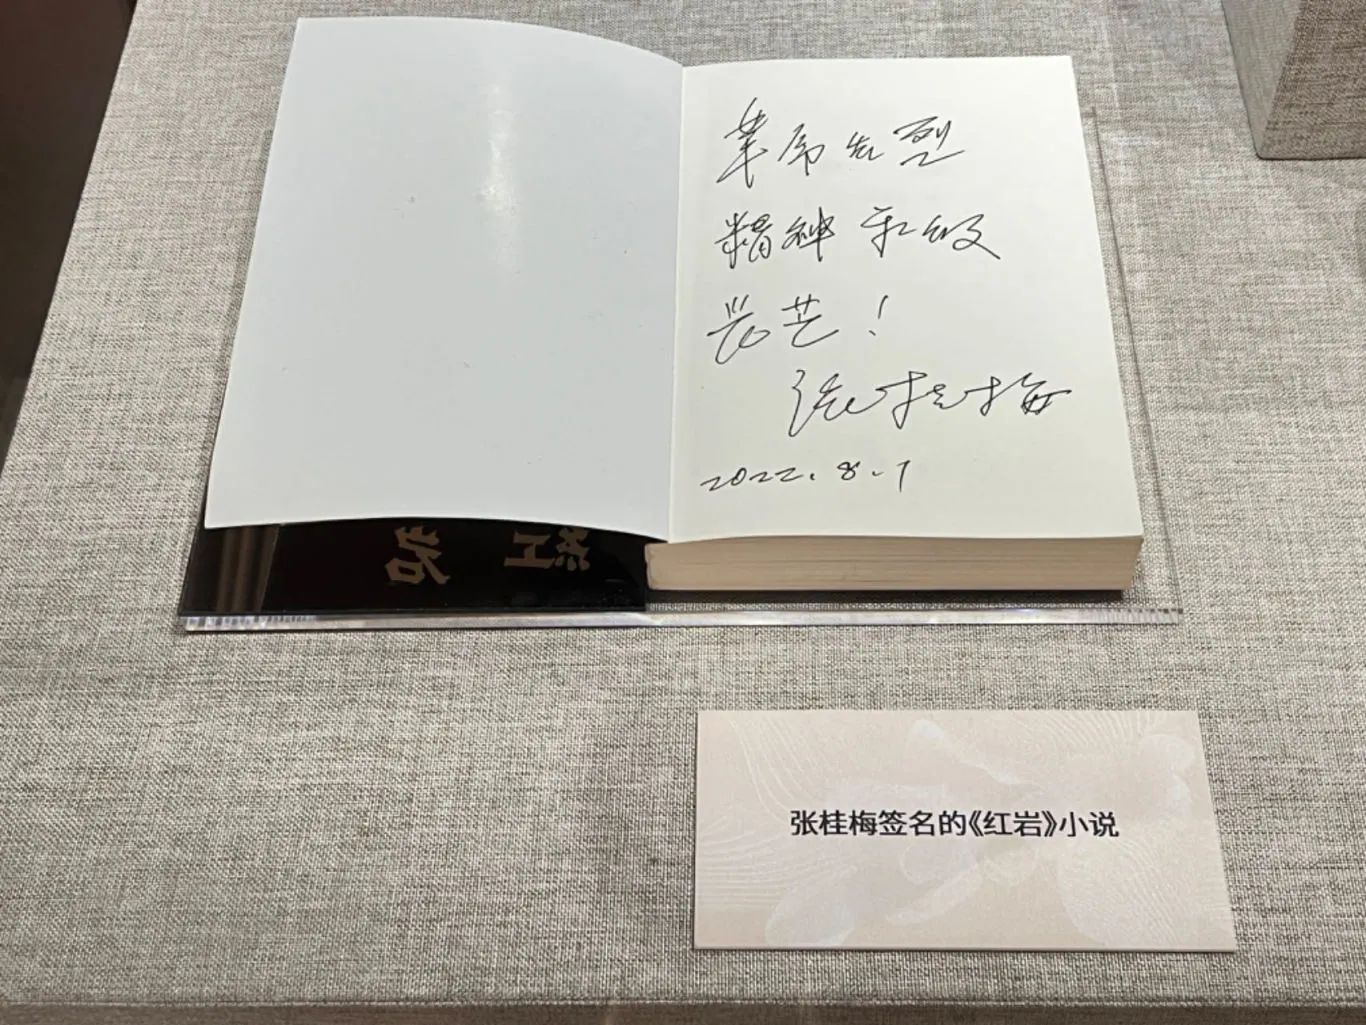 革命先烈
精神永放
光芒！
张桂梅
2022.8.1
红岩
张桂梅签名的《红岩》小说